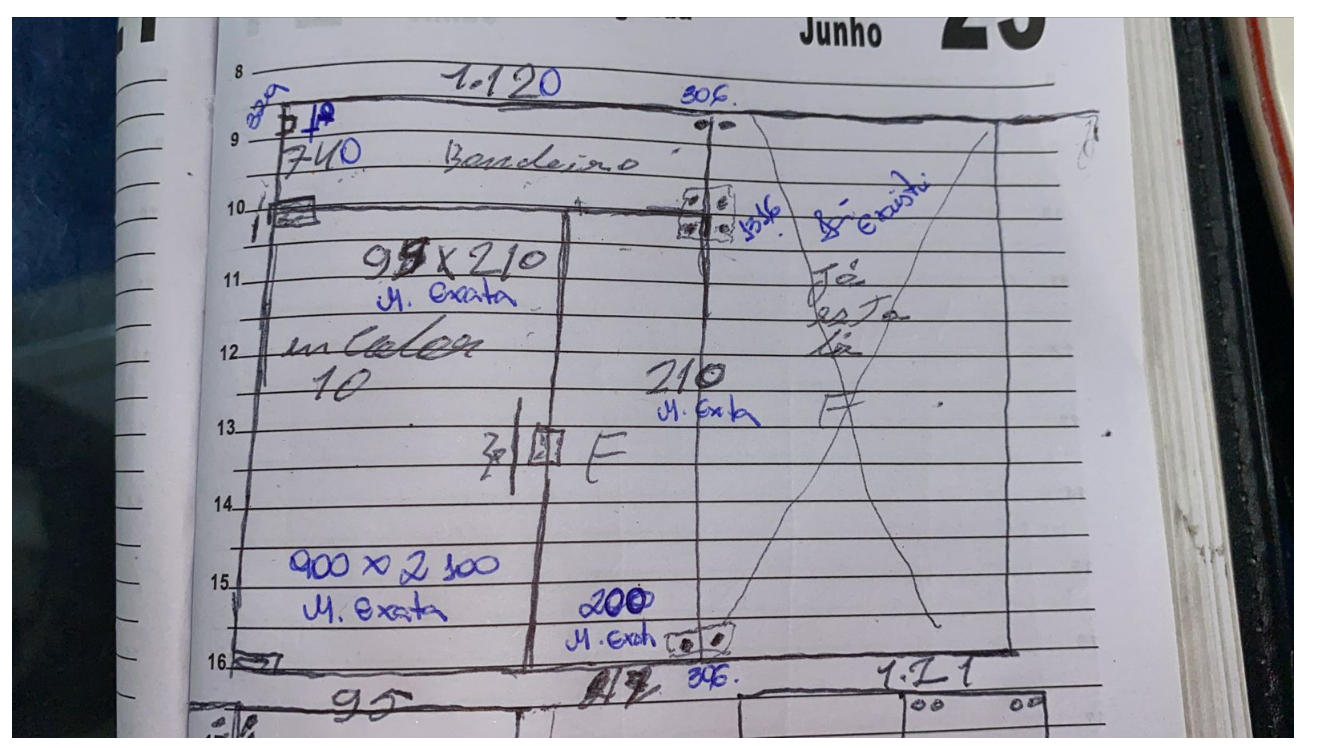 Junho 25
8
1.120
306.
329
9
740 Bandeira
10
1316.
Já Existe.
11
95 X 210
M. Exata
Já
esta
lá
12
incolor
10
210
M. Exata
F
13
F
14
900 x 2 100
M. Exata
15
200
M. Exata
16
95
306.
1.21